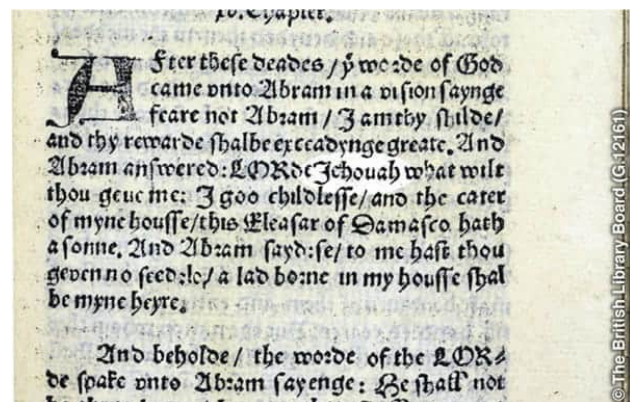 xv. Chapter.
After these deades / yͤ worde of God
came vnto Abram in a vision saynge
feare not Abram / I am thy shilde /
and thy rewarde shalbe exceadynge greate. And
Abram answered: LORde Jehouah what wilt
thou geue me: I goo childlesse / and the cater
of myne housse / this Eleasar of Damasco hath
a sonne. And Abram sayd: se / to me hast thou
geven no seed: lo / a lad borne in my housse shal
be myne heyre.
And beholde / the worde of the LOR⸗
de spake vnto Abram sayenge: He shall not
© The British Library Board (G.12161)